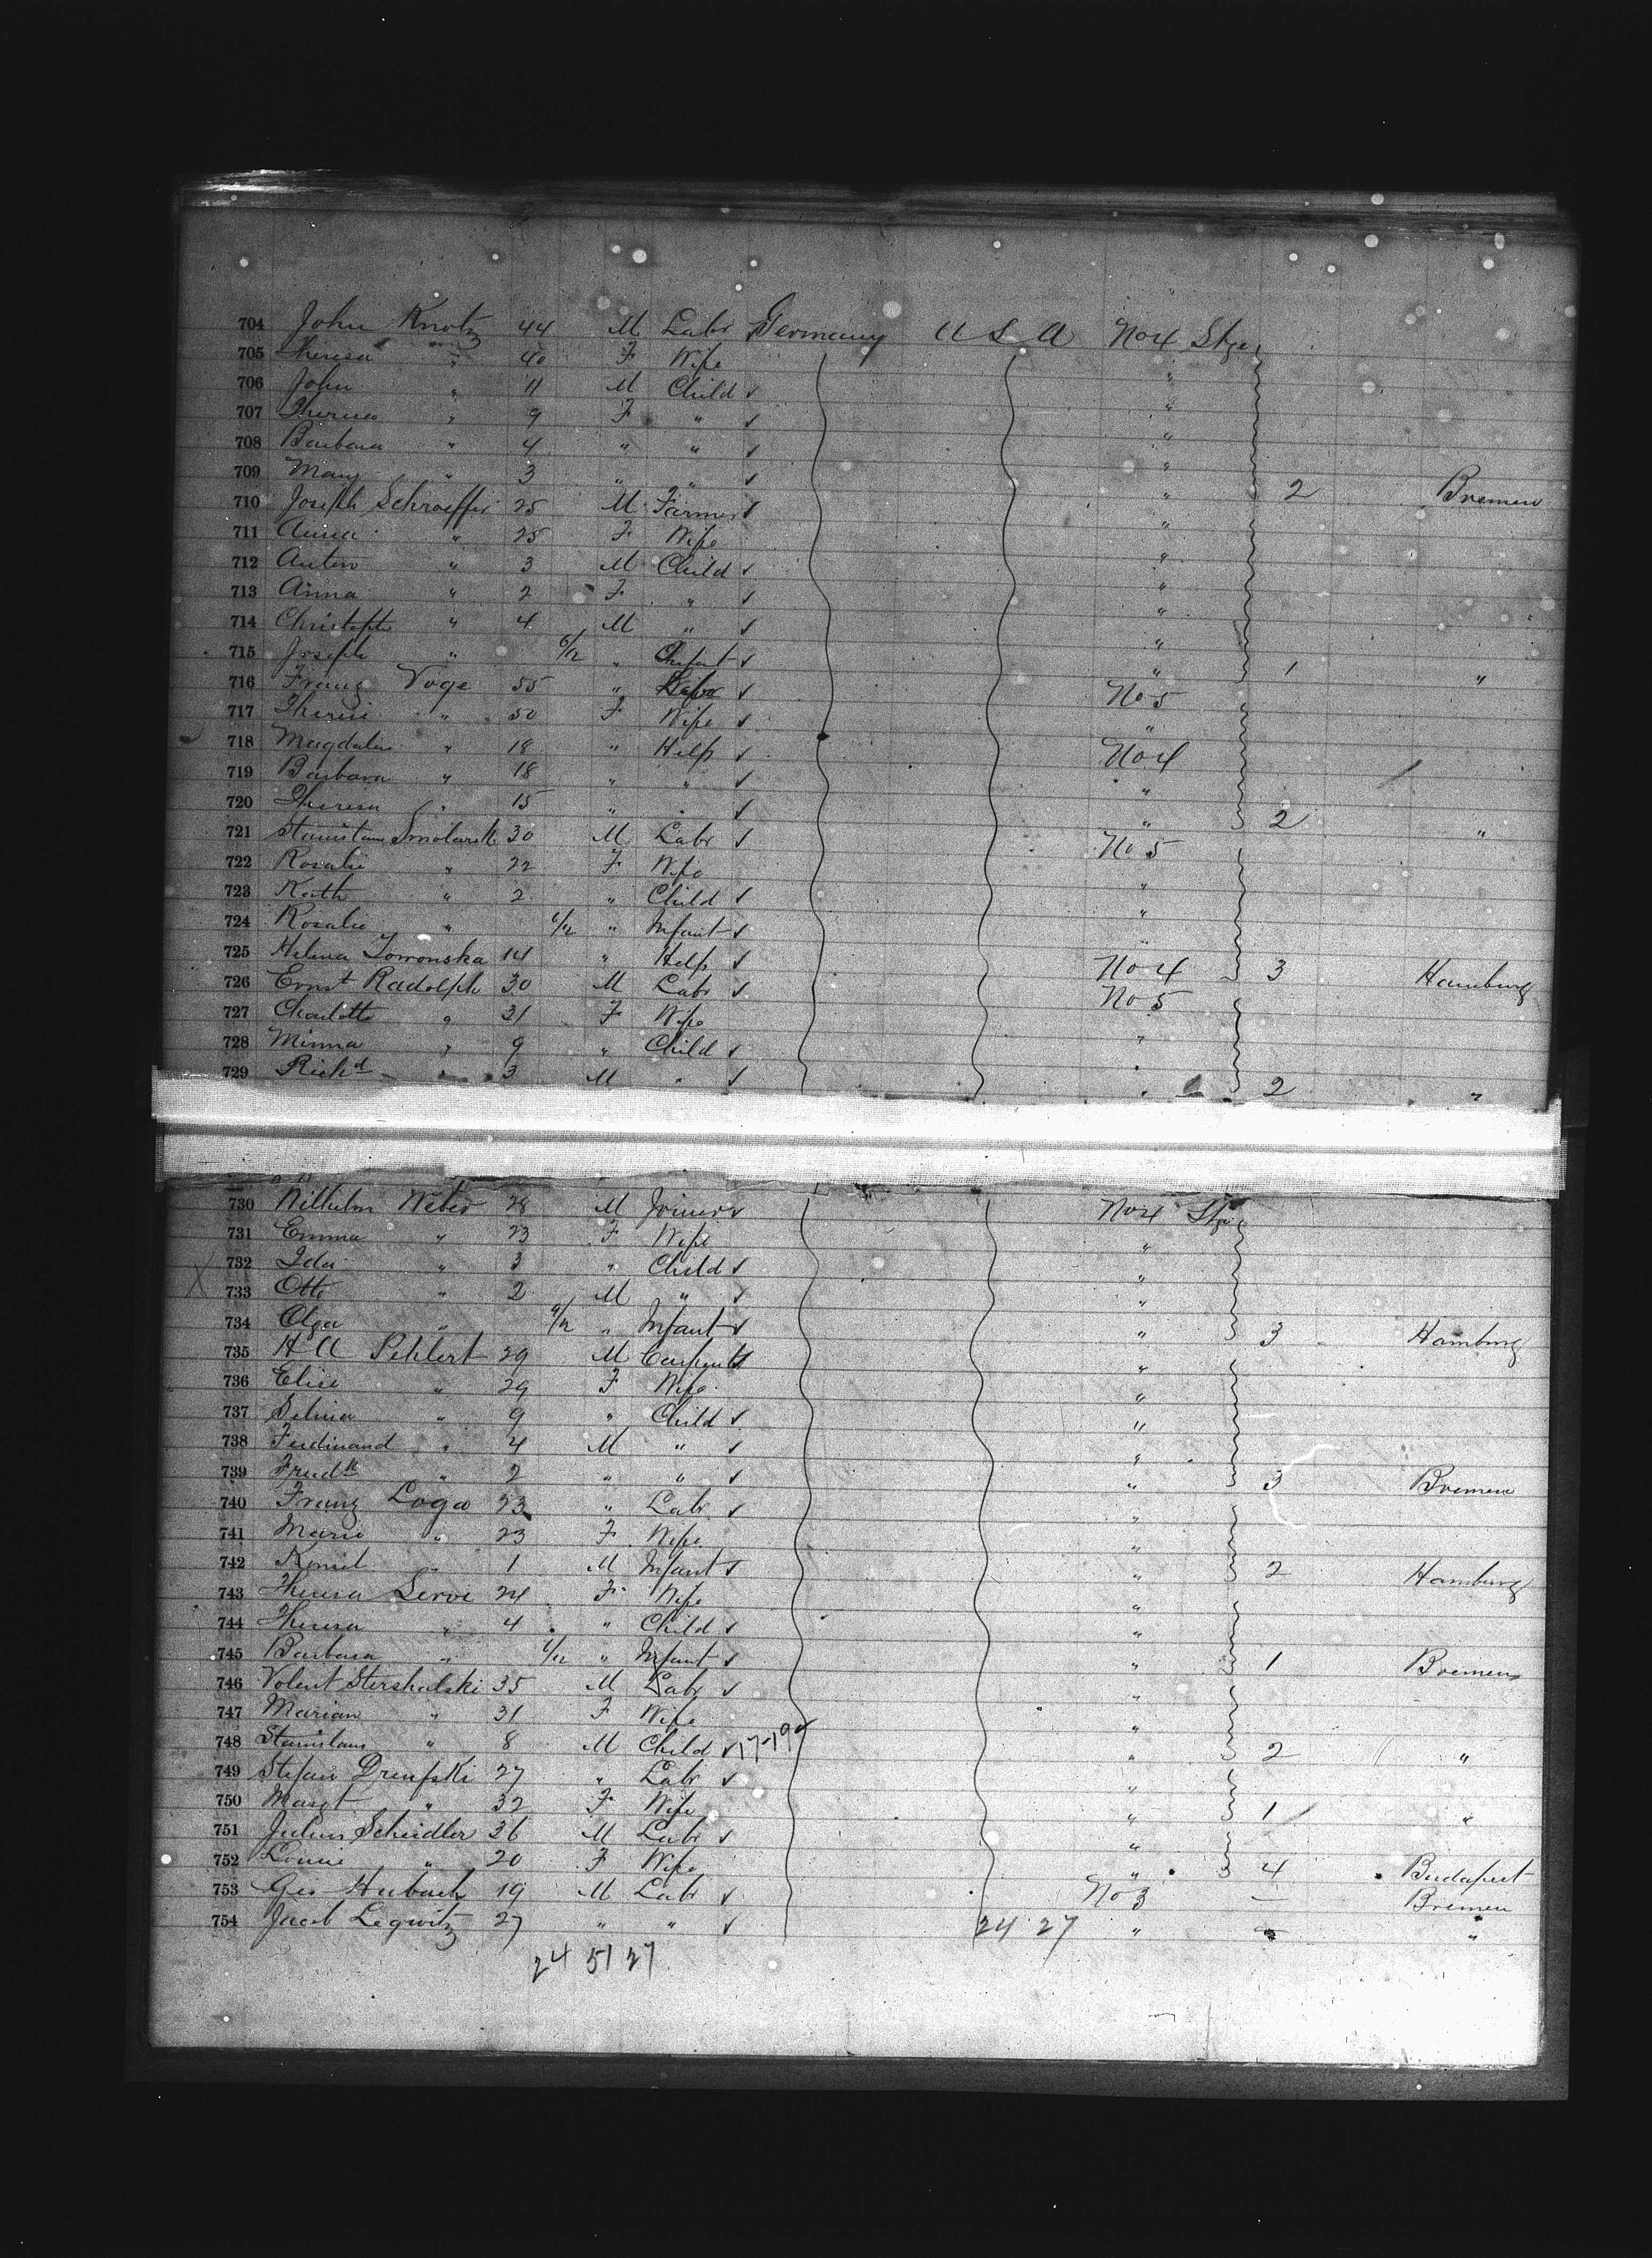 704 John Knotz 44 M Labr Germany U S A No 4 Stge
705 Theresa " 40 F Wife "
706 John " 11 M Child "
707 Theresa " 9 F " "
708 Barbara " 4 " " "
709 Mary " 3 " " " 2 Bremen
710 Joseph Schraeffer 25 M Farmer "
711 Anna " 25 F Wife "
712 Anton " 3 M Child "
713 Anna " 2 F " "
714 Christoph " 4 M " "
715 Joseph " 6/12 " Infant " 1 "
716 Franz Voge 55 " Labr No 5
717 " 50 F Wife "
718 Magdalen " 18 " Help No 4
719 Barbara " 18 " " "
720 Theresa " 15 " " 2 "
721 30 M Labr No 5
722 Rosalie " 22 F Wife "
723 Kath " 2 " Child "
724 Rosalie " 6/12 " Infant "
725 Helena 14 " Help No 4 3 Hamburg
726 Ernst Radolph 30 M Labr No 5
727 Charlotte " 31 F Wife
728 Minna " 9 " Child "
729 Richd " 3 M " " 2 "
730 Wilhelm Weber 28 M Joiner No 4 Stge
731 Emma " 23 F Wife "
732 Ida " 3 " Child "
733 Otto " 2 M " "
734 Olga " " Infant " 3 Hamburg
735 H A Pehlert 29 M Carpentr "
736 Elise " 29 F Wife "
737 Selina " 9 " Child "
738 Ferdinand " 4 M " "
739 Fredk " 2 " " " 3 Bremen
740 Franz Loga 23 " Labr "
741 Marie " 23 F Wife "
742 " 1 M Infant " 2 Hamburg
743 Theresa 24 F Wife "
744 Theresa " 4 " Child "
745 Barbara " 1/12 " Infant " 1 Bremen
746 Volent 35 M Labr "
747 Marian " 31 F Wife "
748 Stanislaus " 8 M Child " 2 "
749 Stefan 27 " Labr "
750 Margt " 32 F Wife " 1 "
751 Julius Scheidler 36 M Labr "
752 Louise " 20 F Wife " 4 Budapest
753 Geo Hubach 19 M Labr No 3 — Bremen
754 Jacob Legwitz 27 " " 24 27 " — "
24 51 27